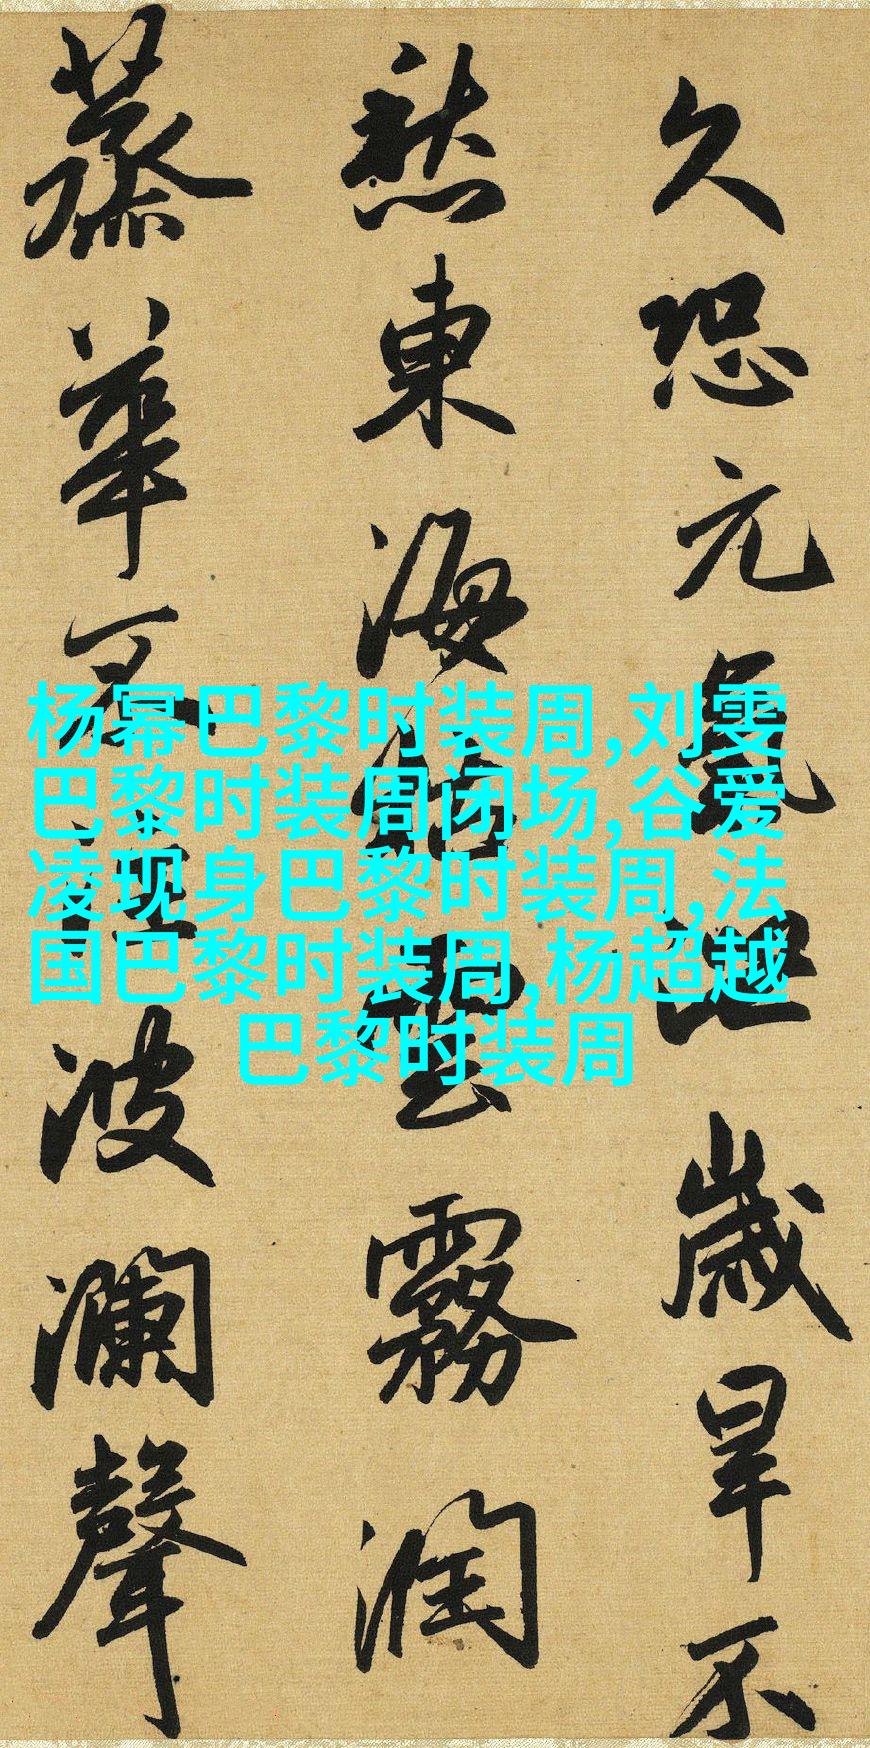 久恐元氣泄歲旱不
愁東海枯雲霧潤
蒸華不注波瀾聲
杨幂巴黎时装周,刘雯
巴黎时装周闭场,谷爱
凌现身巴黎时装周,法
国巴黎时装周,杨超越
巴黎时装周